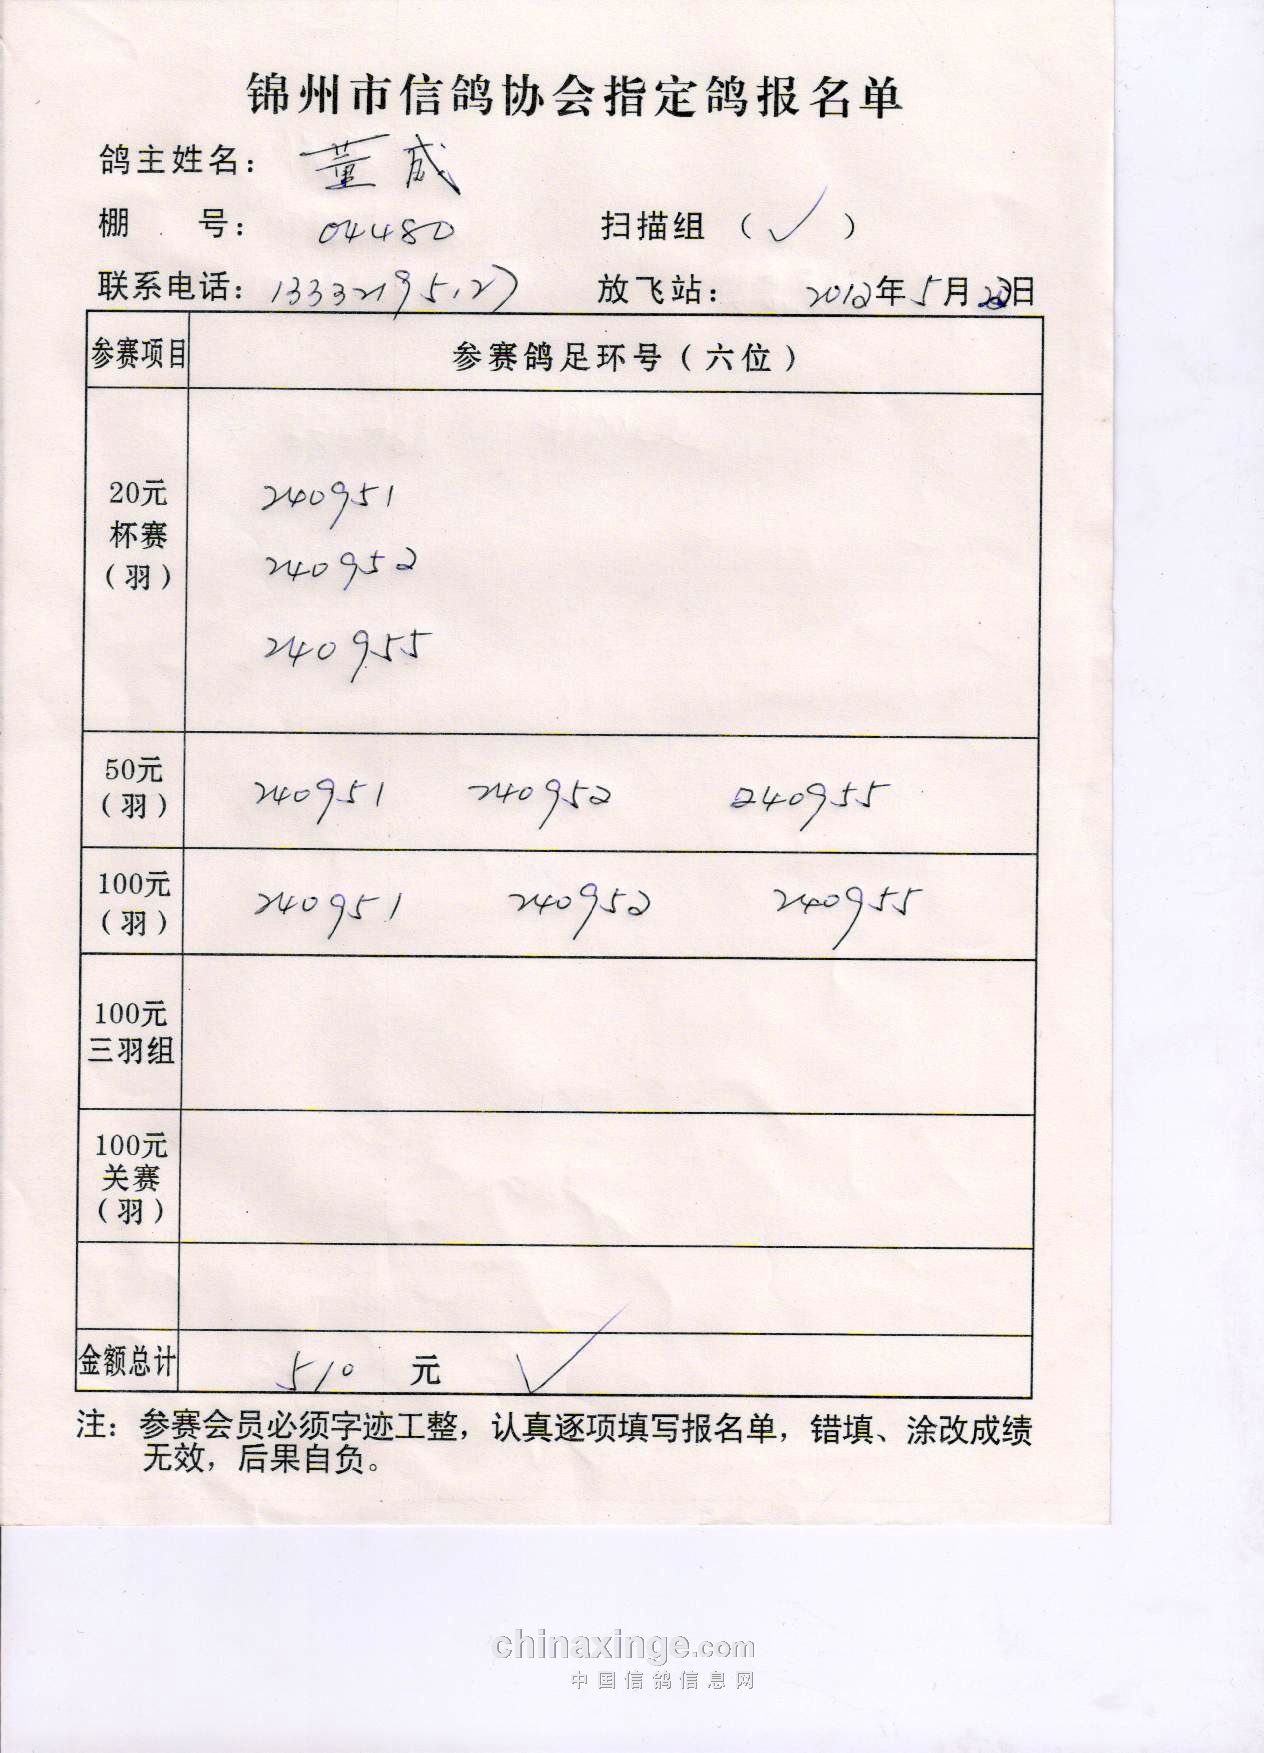 锦州市信鸽协会指定鸽报名单
鸽主姓名： 董威
棚 号： 04480 扫描组 （√）
联系电话： 13332195127 放飞站： 2012年5月 日
参赛项目 参赛鸽足环号（六位）
20元
杯赛
（羽）
240951
240952
240955
50元
（羽）
240951 240952 240955
100元
（羽）
240951 240952 240955
100元
三羽组
100元
关赛
（羽）
金额总计 510 元 √
注：参赛会员必须字迹工整，认真逐项填写报名单，错填、涂改成绩
无效，后果自负。
chinaxinge.com
中国信鸽信息网